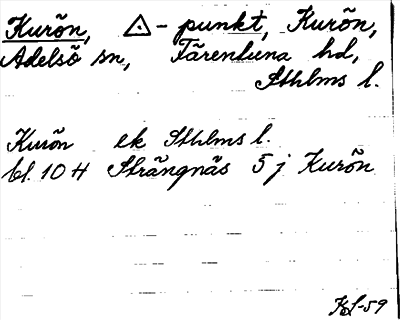 Kurön, △-punkt, Kurön,
Adelsö sn, Färentuna hd,
Sthlms l.
Kurön ek Sthlms l.
bl. 10 H Strängnäs 5 j Kurön
KL-59